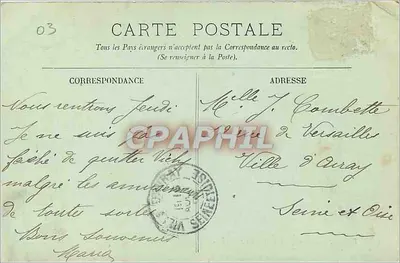 03
CARTE POSTALE
Tous les Pays étrangers n'acceptent pas la Correspondance au recto.
(Se renseigner à la Poste).
CORRESPONDANCE
Nous rentrons Jeudi
Je ne suis pas
fâché de quitter Vichy
malgré les amusements
de toutes sortes
Bons souvenirs
ADRESSE
Melle J. Combette
rue de Versailles
Ville d'Avray
Seine et Oise
CPAPHIL
SEINE ET OISE